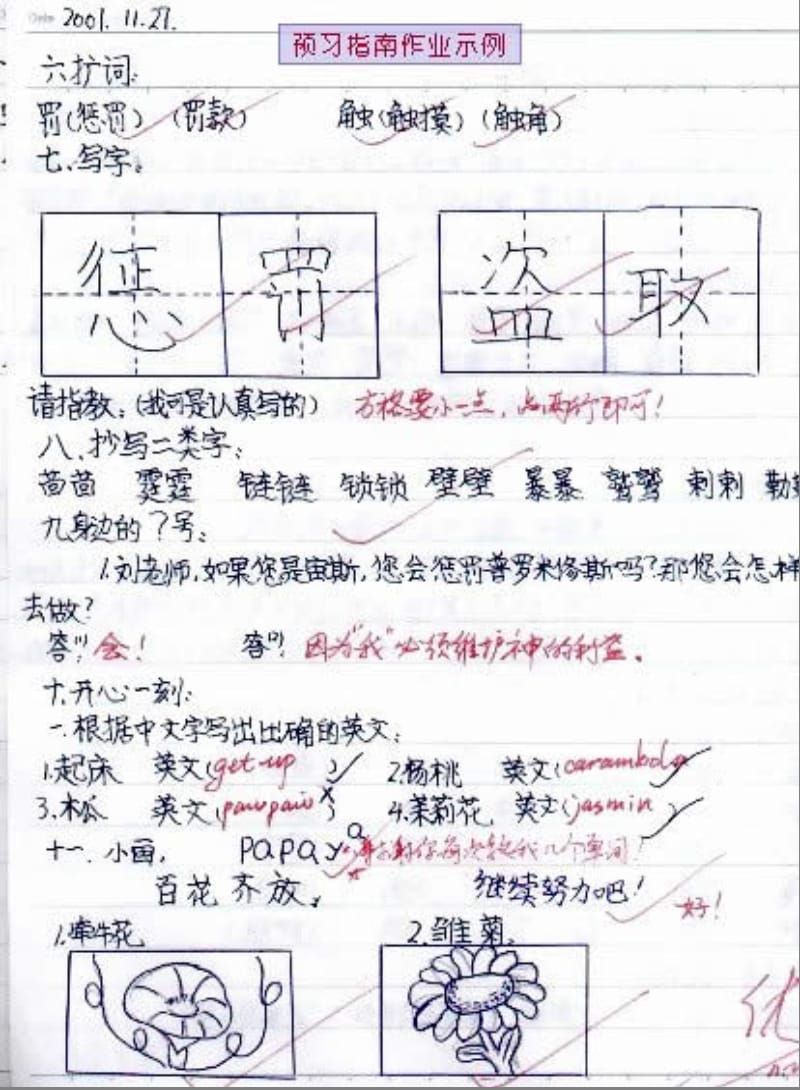 2001.11.27.
预习指南作业示例
六扩词:
罚(惩罚) (罚款) 触(触摸) (触角)
七、写字:
惩 罚 盗 取
请指教:(我可是认真写的) 方格要小一点,占两行即可!
八、抄写二类字:
茴茴 霆霆 链链 锁锁 壁壁 暴暴 鹫鹫 刺刺 勒
九身边的?号:
1.刘老师,如果您是宙斯,您会惩罚普罗米修斯吗?那您会怎样
去做?
答:会! 答: 因为“我”必须维护神的利益。
十.开心一刻:
一.根据中文字写出比确的英文:
1.起床 英文(get-up) 2.杨桃 英文(carambola)
3.木瓜 英文(pawpaw) 4.茉莉花 英文(jasmin)
十一.小画, papaya 每次给我几个单词!
百花齐放。 继续努力吧! 好!
1.牵牛花 2.雏菊。
优